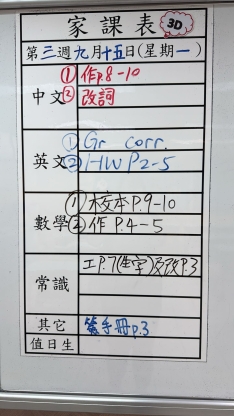 家課表 3D
第三週九月十五日(星期一)
中文 ①作p.8-10
②改詞
英文 ①Gr corr.
②HW P2-5
數學 ①校本P.9-10
②作P.4-5
常識 工P.7(生字)及改P.3
其它 手冊p.3
值日生